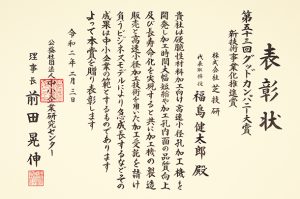 表彰状
第五十二回グッドカンパニー大賞
新技術事業化推進賞
株式会社 芝技研
代表取締役 福島健太郎 殿
貴社は硬脆性材料加工向け高速小径孔加工機を
開発し加工時間大幅短縮や加工孔内面の品質向上
及び長寿命化を実現すると共に加工機の製造
販売と高速小径加工技術を用いた加工受託を請け
負うビジネスモデルにより急成長するなどその
成果は中小企業の範とするものであります
よって本賞を贈り表彰します
令和二年二月三日
公益社団法人中小企業研究センター
理事長 前田晃伸